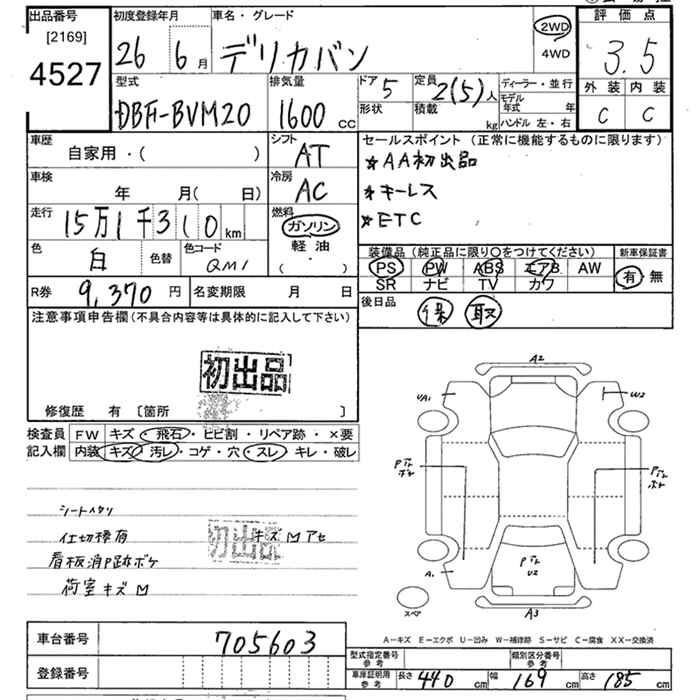 出品番号 初度登録年月 車名・グレード 評価点
[2169] 4527
26 6月 デリカバン 2WD 4WD 3.5
型式 排気量 ドア 5 定員 2(5)人 ディーラー・並行
外装 内装
DBF-BVM20 1600cc 形状 積載 kg モデル年式 年 C C
ハンドル 左・右
車歴 自家用・( ) シフト AT セールスポイント (正常に機能するものに限ります)
*AA初出品
車検 年 月( 日) 冷房 AC *キーレス
走行 15万1千310km 燃料 ガソリン *ETC
軽油
( ・ )
色 白 色替 色コード QM1 装備品 (純正品に限り〇をつけてください) 新車保証書
PS PW ABS エアB AW 有 無
SR ナビ TV カワ
R券 9,370円 名変期限 月 日 後日品 保 取
注意事項申告欄 (不具合内容等は具体的に記入して下さい)
初出品
修復歴 有 〔箇所 〕
検査員 FW キズ・飛石・ヒビ割・リペア跡・×要
記入欄 内装 キズ・汚レ・コゲ・穴・スレ・キレ・破レ
シートヘタリ
仕切棒有 キズ M アセ
初出品
看板消P跡ボケ
荷室キズM
A2
UA1 W2
Pテカ ボケ Pテカ ボケ
Pテカ U2
A1 A
スペア A3
A-キズ E-エクボ U-凹み W-補修跡 S-サビ C-腐食 XX-交換済
車台番号 705603
登録番号
型式指定番号 参考 類別区分番号 参考
車庫証明用 参考 長さ 440cm 幅 169cm 高さ 185cm